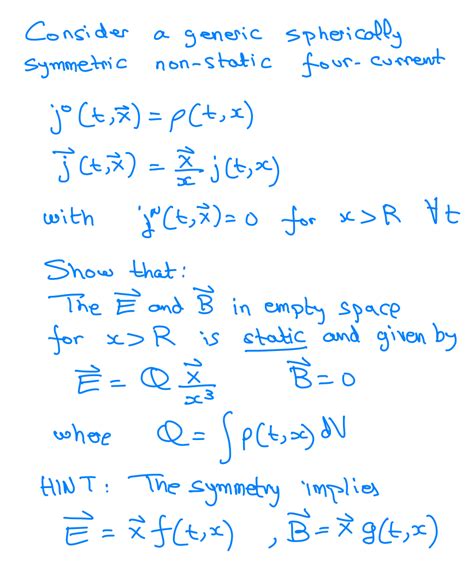 Consider a generic spherically
symmetric non-static four-current
j⁰(t,x⃗) = ρ(t,x)
j⃗(t,x⃗) = x⃗/x j(t,x)
with j^μ(t,x⃗) = 0 for x>R ∀t
Show that:
The E⃗ and B⃗ in empty space
for x>R is static and given by
E⃗ = Q x⃗/x³ B⃗ = 0
where Q = ∫ρ(t,x)dV
HINT: The symmetry implies
E⃗ = x⃗ f(t,x) , B⃗ = x⃗ g(t,x)